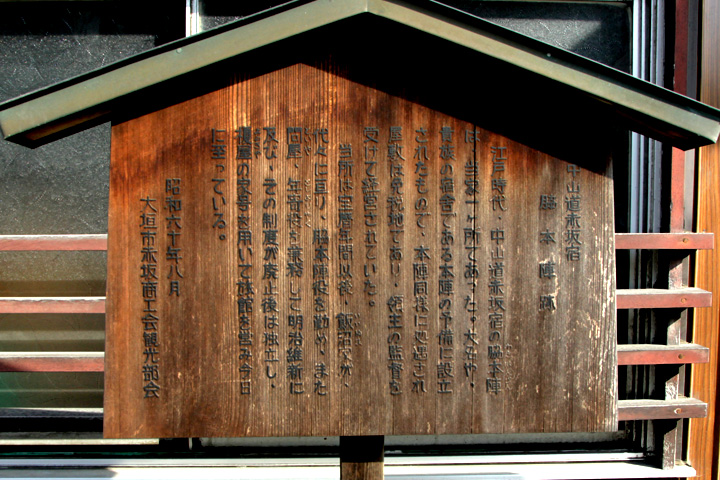 中山道赤坂宿
脇本陣跡
江戸時代、中山道赤坂宿の脇本陣
は、当家一ヶ所であった。大名や、
貴族の宿舎である本陣の予備に設立
されたもので、本陣同様に処遇され
屋敷は免税地であり、領主の監督を
受けて経営されていた。
当所は宝暦年間以後、飯沼家が、
代々に亘り、脇本陣役を勤め、また
問屋、年寄役を兼務して明治維新に
及び、その制度が廃止後は独立し、
榎屋の家号を用いて旅館を営み今日
に至っている。
昭和六十年八月
大垣市赤坂商工会観光部会